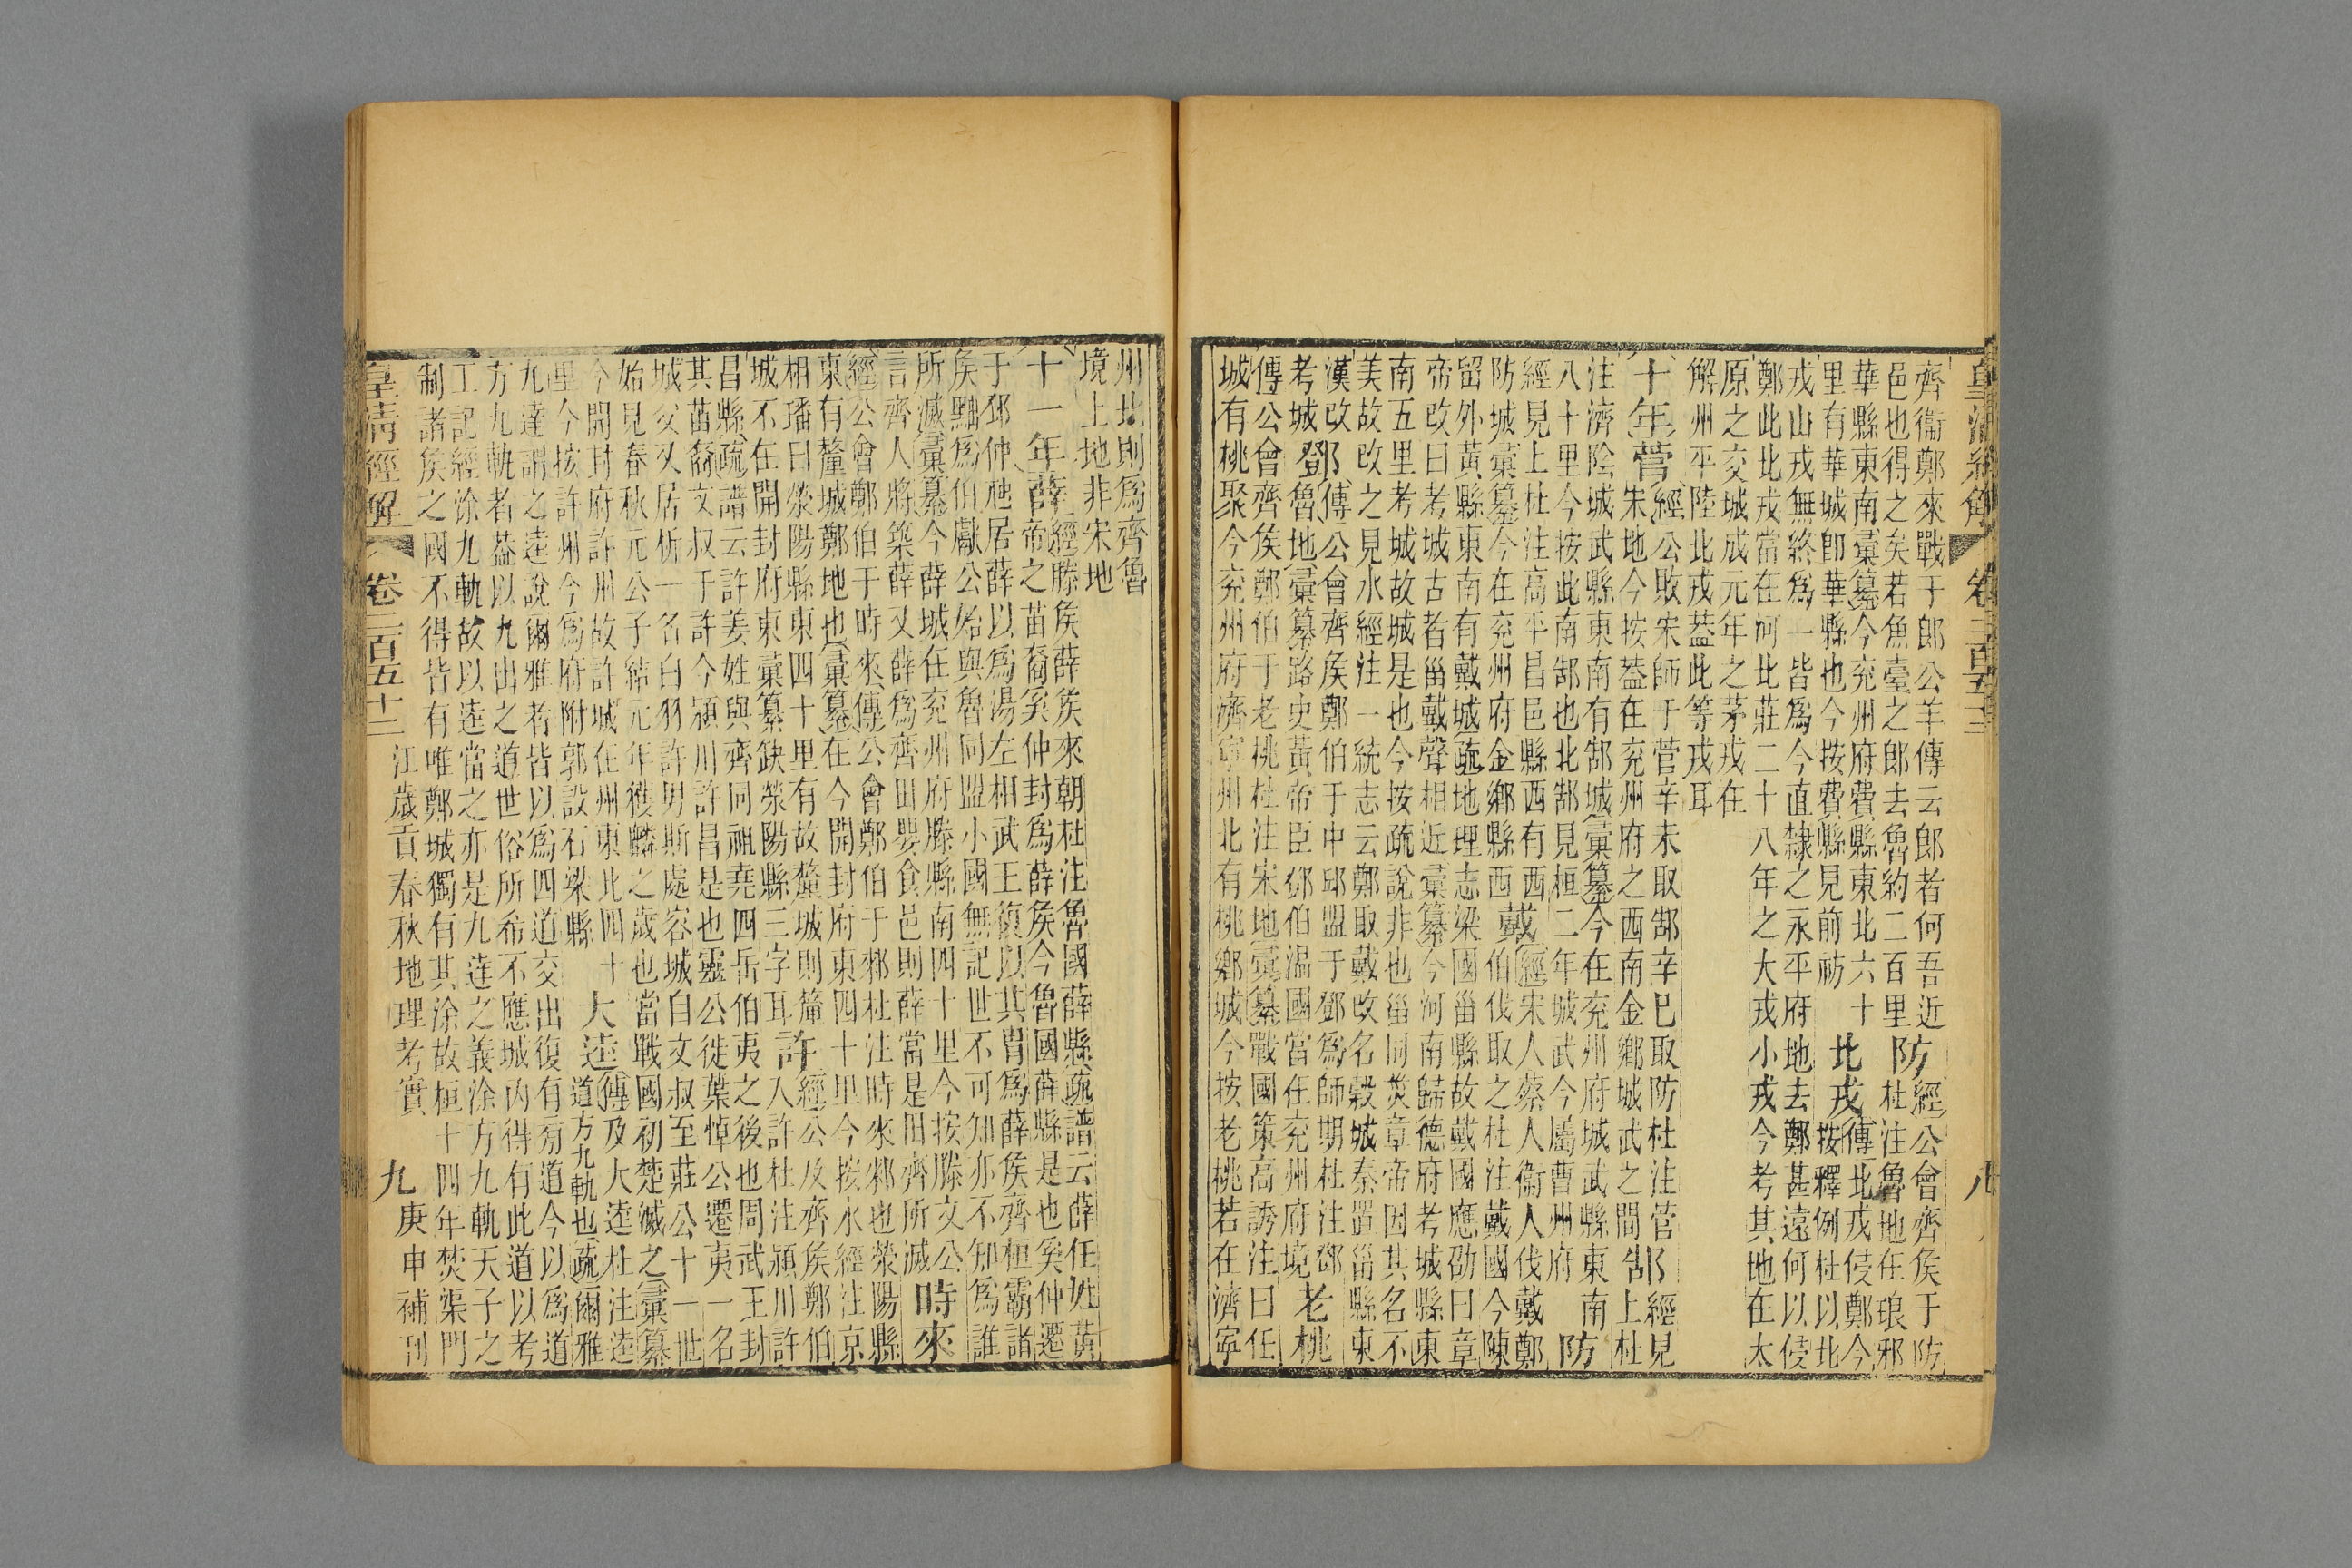 皇清經解 卷二百五十二 八
齊衞鄭來戰于郎公羊傳云郎者何吾近
邑也得之矣若魚臺之郎去魯約二百里
防
經公會齊矦于防
杜注魯地在琅邪
華縣東南彙纂今兖州府費縣東北六十
里有華城卽華縣也今按費縣見前祊
北戎
傳北戎侵鄭今
按釋例杜以北
戎山戎無終爲一皆爲今直隸之永平府地去鄭甚遠何以侵
鄭此北戎當在河北莊二十八年之大戎小戎今考其地在太
原之交城成元年之茅戎在
解州平陸北戎蓋此等戎耳
十年
菅
經公敗宋師于菅辛未取郜辛巳取防杜注菅
宋地今按蓋在兖州府之西南金鄉城武之間
郜
經見
上杜
注濟陰城武縣東南有郜城彙纂今在兖州府城武縣東南
八十里今按此南郜也北郜見桓二年城武今屬曹州府
防
經見上杜注高平昌邑縣西有西
防城彙纂今在兖州府金鄉縣西
戴
經宋人蔡人衞人伐戴鄭
伯伐取之杜注戴國今陳
留外黃縣東南有戴城疏地理志梁國甾縣故戴國應劭曰章
帝改曰考城古者甾戴聲相近彙纂今河南歸德府考城縣東
南五里考城故城是也今按疏說非也甾同災章帝因其名不
美故改之見水經注一統志云鄭取戴改名穀城秦置甾縣東
漢改
考城
鄧
傳公會齊矦鄭伯于中邱盟于鄧爲師期杜注鄧
魯地彙纂路史黃帝臣鄧伯温國當在兖州府境
老桃
傳公會齊矦鄭伯于老桃杜注宋地彙纂戰國策高誘注曰任
城有桃聚今兖州府濟寧州北有桃鄉城今按老桃若在濟寧
州北則爲齊魯
境上地非宋地
十一年
薛
經滕矦薛矦來朝杜注魯國薛縣疏譜云薛任姓黃
帝之苗裔奚仲封爲薛矦今魯國薛縣是也奚仲遷
于邳仲虺居薛以爲湯左相武王復以其胄爲薛矦齊桓霸諸
矦黜爲伯獻公始與魯同盟小國無記世不可知亦不知爲誰
所滅彙纂今薛城在兖州府滕縣南四十里今按滕文公
言齊人將築薛又薛爲齊田嬰食邑則薛當是田齊所滅
時來
經公會鄭伯于時來傳公會鄭伯于郲杜注時來郲也滎陽縣
東有釐城鄭地也彙纂在今開封府東四十里今按水經注京
相璠曰滎陽縣東四十里有故釐城則釐
城不在開封府東彙纂缺滎陽縣三字耳
許
經公及齊矦鄭伯
入許杜注潁川許
昌縣疏譜云許姜姓與齊同祖堯四岳伯夷之後也周武王封
其苗裔文叔于許今潁川許昌是也靈公徙葉悼公遷夷一名
城父又居析一名白羽許男斯處容城自文叔至莊公十一世
始見春秋元公子結元年獲麟之歲也當戰國初楚滅之彙纂
今開封府許州故許城在州東北四十
里今按許州今爲府附郭設石梁縣
大逵
傳及大逵杜注逵
道方九軌也疏爾雅
九達謂之逵說爾雅者皆以爲四道交出復有旁道今以爲道
方九軌者蓋以九出之道世俗所希不應城內得有此道以考
工記經涂九軌故以逵當之亦是九逵之義涂方九軌天子之
制諸矦之國不得皆有唯鄭城獨有其涂故桓十四年焚渠門
皇清經解 卷二百五十二 江歲貢春秋地理考實 九 庚申補刊